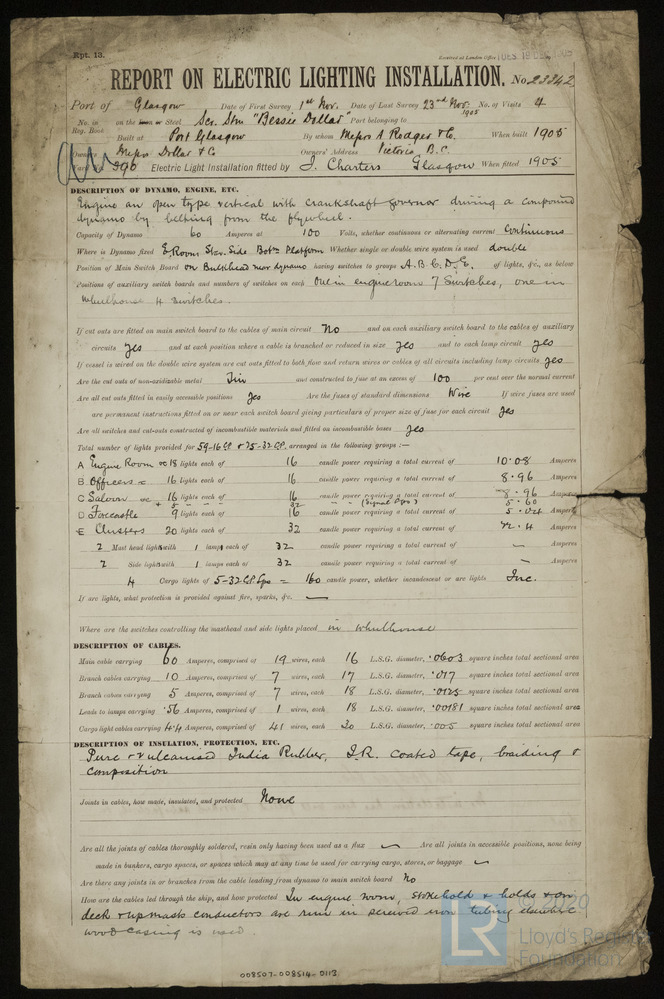 Rpt. 13.
Received at London Office TUES. 19 DEC 1905
REPORT ON ELECTRIC LIGHTING INSTALLATION. No. 23342
Port of Glasgow Date of First Survey 1st Nov. Date of Last Survey 23rd Nov. 1905 No. of Visits 4
No. in Reg. Book on the Iron or Steel Scr. Str "Bessie Dollar" Port belonging to
Built at Port Glasgow By whom Messrs A. Rodger & Co. When built 1905
Owners Messrs Dollar & Co Owners' Address Victoria, B.C.
Yard No. 390 Electric Light Installation fitted by J. Charters Glasgow When fitted 1905
DESCRIPTION OF DYNAMO, ENGINE, ETC.
Engine an open type vertical with crankshaft governor driving a compound
dynamo by belting from the flywheel.
Capacity of Dynamo 60 Amperes at 100 Volts, whether continuous or alternating current Continuous
Where is Dynamo fixed E. Room Star. Side Botm Platform Whether single or double wire system is used double
Position of Main Switch Board on Bulkhead near dynamo having switches to groups A. B. C. D. E. of lights, &c., as below
Positions of auxiliary switch boards and numbers of switches on each One in engine room 7 Switches, one in
Wheelhouse 4 Switches.
If cut outs are fitted on main switch board to the cables of main circuit No and on each auxiliary switch board to the cables of auxiliary
circuits yes and at each position where a cable is branched or reduced in size yes and to each lamp circuit yes
If vessel is wired on the double wire system are cut outs fitted to both flow and return wires or cables of all circuits including lamp circuits yes
Are the cut outs of non-oxidizable metal Tin and constructed to fuse at an excess of 100 per cent over the normal current
Are all cut outs fitted in easily accessible positions yes Are the fuses of standard dimensions Wire If wire fuses are used
are permanent instructions fitted on or near each switch board giving particulars of proper size of fuse for each circuit yes
Are all switches and cut-outs constructed of incombustible materials and fitted on incombustible bases yes
Total number of lights provided for 59-16 CP. & 25-32 CP. arranged in the following groups :—
A Engine Room &c 18 lights each of 16 candle power requiring a total current of 10.08 Amperes
B Officers &c 16 lights each of 16 candle power requiring a total current of 8.96 Amperes
C Saloon &c 16 lights each of 16 candle power requiring a total current of 8.96 Amperes
+ 5 32 (Signal Lps) 5.60
D Forecastle 9 lights each of 16 candle power requiring a total current of 5.04 Amperes
E Clusters 20 lights each of 32 candle power requiring a total current of 22.4 Amperes
2 Mast head lights with 1 lamps each of 32 candle power requiring a total current of — Amperes
2 Side lights with 1 lamps each of 32 candle power requiring a total current of — Amperes
4 Cargo lights of 5-32 C.P. Lps = 160 candle power, whether incandescent or arc lights Inc.
If arc lights, what protection is provided against fire, sparks, &c. —
Where are the switches controlling the masthead and side lights placed in Wheelhouse
DESCRIPTION OF CABLES.
Main cable carrying 60 Amperes, comprised of 19 wires, each 16 L.S.G. diameter, .0603 square inches total sectional area
Branch cables carrying 10 Amperes, comprised of 7 wires, each 17 L.S.G. diameter, .017 square inches total sectional area
Branch cables carrying 5 Amperes, comprised of 7 wires, each 18 L.S.G. diameter, .0125 square inches total sectional area
Leads to lamps carrying .56 Amperes, comprised of 1 wires, each 18 L.S.G. diameter, .00181 square inches total sectional area
Cargo light cables carrying 4.4 Amperes, comprised of 41 wires, each 30 L.S.G. diameter, .005 square inches total sectional area
DESCRIPTION OF INSULATION, PROTECTION, ETC.
Pure & Vulcanised India Rubber, I.R. coated tape, braiding &
composition
Joints in cables, how made, insulated, and protected None
Are all the joints of cables thoroughly soldered, resin only having been used as a flux — Are all joints in accessible positions, none being
made in bunkers, cargo spaces, or spaces which may at any time be used for carrying cargo, stores, or baggage —
Are there any joints in or branches from the cable leading from dynamo to main switch board No
How are the cables led through the ship, and how protected In engine room, stokehold & holds & on
deck & up masts conductors are run in screwed iron tubing elsewhere
wood casing is used.
008507-008514-0113
© 2020
LR
Lloyd's Register
Foundation